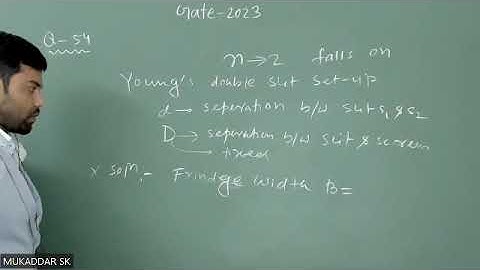 Gate-2023
Q-54
n→2 falls on
Young's double slit set-up
d → seperation b/w slit s1 & s2
D → seperation b/w slit & screen
→ fixed
x soln:- Frindge width B=
MUKADDAR SK